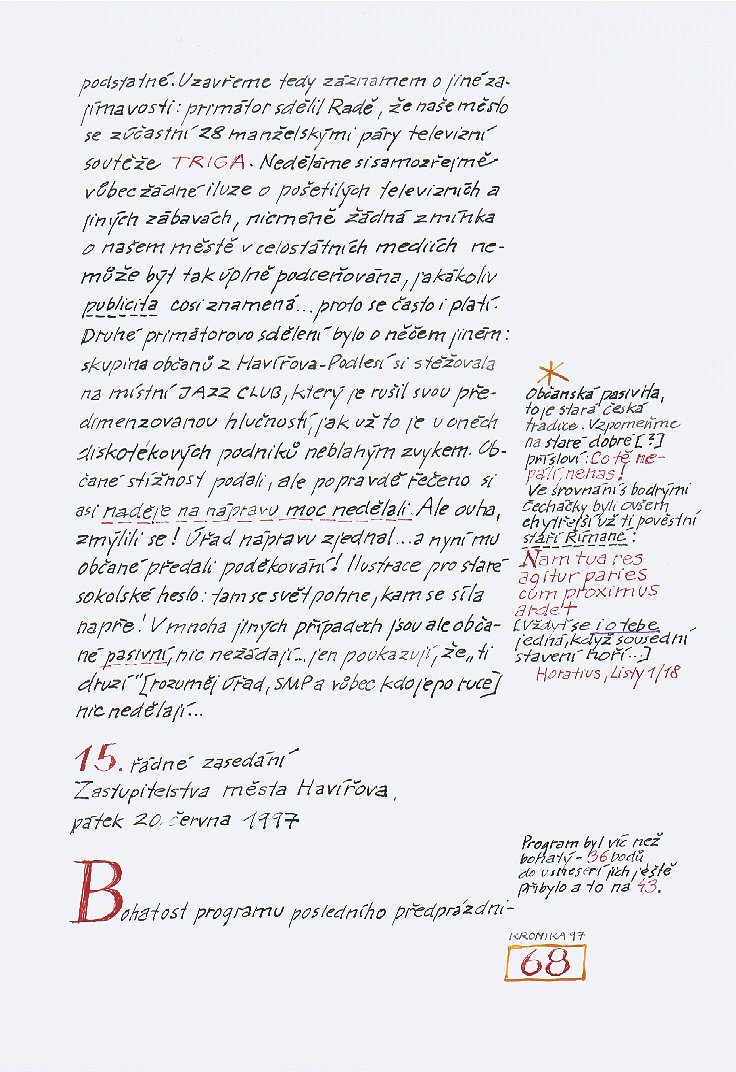 podstatné. Uzavřeme tedy záznamem o jiné za-
jímavosti: primátor sdělil Radě, že naše město
se zúčastní 28 manželskými páry televizní
soutěže TRIGA. Neděláme si samozřejmě
vůbec žádné iluze o pošetilých televizních a
jiných zábavách, nicméně žádná zmínka
o našem městě v celostátních mediích ne-
může být tak úplně podceňována, jakákoliv
publicita cosi znamená... proto se často i platí.
Druhé primátorovo sdělení bylo o něčem jiném:
skupina občanů z Havířova-Podlesí si stěžovala
na místní JAZZ CLUB, který je rušil svou pře-
dimenzovanou hlučností, jak už to je u oněch
diskotékových podniků neblahým zvykem. Ob-
čané stížnost podali, ale popravdě řečeno si
asi naděje na nápravu moc nedělali. Ale ouha,
zmýlili se! Úřad nápravu zjednal...a nyní mu
občané předali poděkování! Ilustrace pro staré
sokolské heslo: tam se svět pohne, kam se síla
napře! V mnoha jiných případech jsou ale obča-
né pasivní, nic nežádají... jen poukazují, že „ti
druzí" [rozuměj úřad, SMP a vůbec kdo je po ruce]
nic nedělají...
*
Občanská pasivita,
to je stará česká
tradice. Vzpomeňme
na staré dobré [?]
přísloví: Co tě ne-
pálí, nehas!
Ve srovnání s bodrými
Čecháčky byli ovšem
chytřejší už ti pověstní
staří Římané:
Nam tua res
agitur paries
cum proximus
ardet
[Vždyť se i o tebe
jedná, když sousední
stavení hoří...]
Horatius, Listy 1/18
15. řádné zasedání
Zastupitelstva města Havířova,
pátek 20. června 1997
Bohatost programu posledního předprázdni-
Program byl víc než
bohatý - 36 bodů
do usnesení jich ještě
přibylo a to na 43.
KRONIKA 97
68